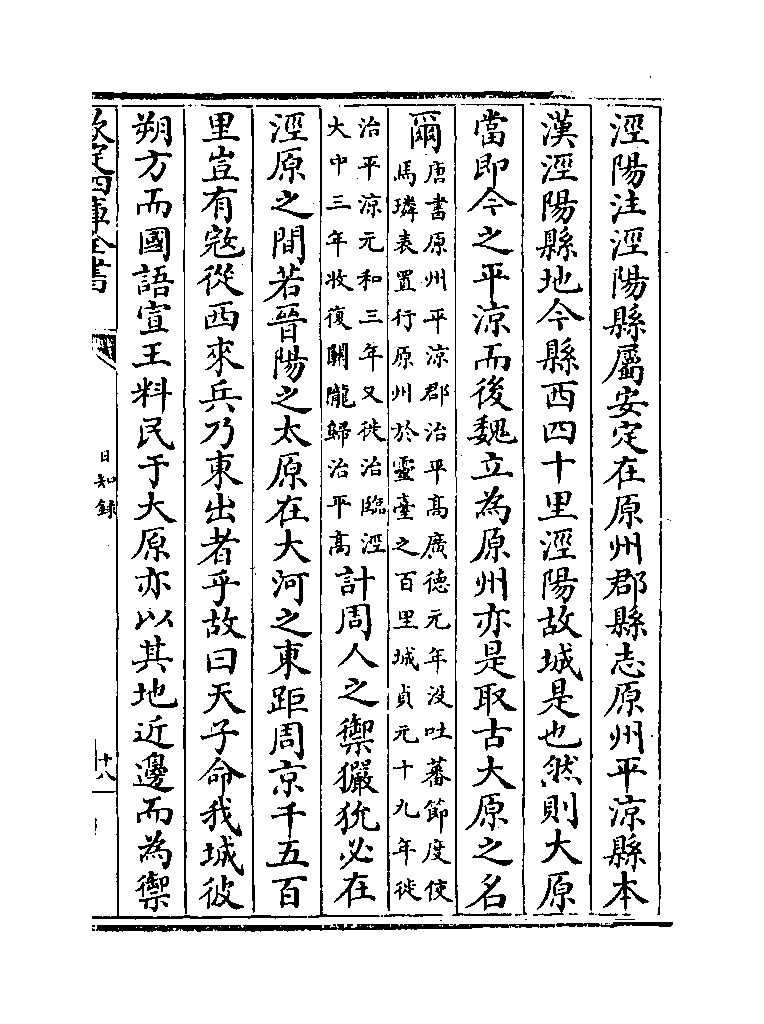 涇陽注涇陽縣屬安定在原州郡縣志原州平涼縣本
漢涇陽縣地今縣西四十里涇陽故城是也然則大原
當即今之平涼而後魏立為原州亦是取古大原之名
爾
唐書原州平涼郡治平髙廣德元年沒吐蕃節度使
馬璘表置行原州於靈臺之百里城貞元十九年徙
治平涼元和三年又徙治臨涇
大中三年收復關隴歸治平髙
計周人之禦玁狁必在
涇原之間若晉陽之太原在大河之東距周京千五百
里豈有寇從西來兵乃東出者乎故曰天子命我城彼
朔方而國語宣王料民于大原亦以其地近邊而為禦
欽定四庫全書
日知錄
十八